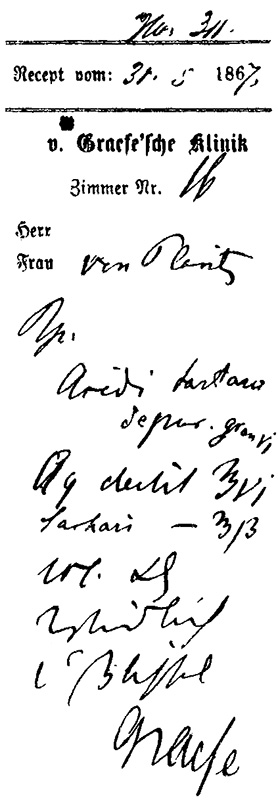 No. 311.
Recept vom: 31. 5 1867.
v. Graefe'sche Klinik
Zimmer Nr. 16
Herr
Frau von
Rp.
Acidi tartari
depur. gran vj
Aq destil ʒvj
Sacchari — ʒβ
DS
2stündlich
1 Eßlöffel
Graefe